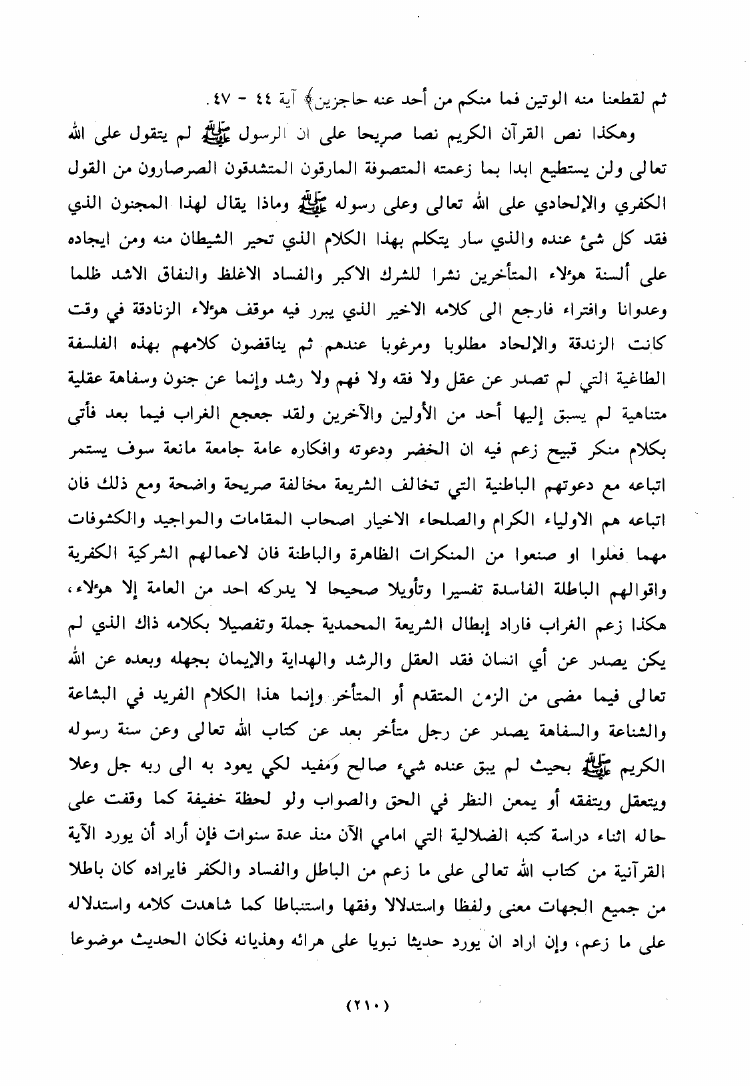 ثم لقطعنا منه الوتين فما منكم من أحد عنه حاجزين﴾ آية ٤٤ - ٤٧.
وهكذا نص القرآن الكريم نصا صريحا على ان الرسول ﷺ لم يتقول على الله
تعالى ولن يستطيع ابدا بما زعمته المتصوفة المارقون المتشدقون الصرصارون من القول
الكفري والإلحادي على الله تعالى وعلى رسوله ﷺ وماذا يقال لهذا المجنون الذي
فقد كل شئ عنده والذي سار يتكلم بهذا الكلام الذي تحير الشيطان منه ومن ايجاده
على ألسنة هؤلاء المتأخرين نشرا للشرك الاكبر والفساد الاغلظ والنفاق الاشد ظلما
وعدوانا وافتراء فارجع الى كلامه الاخير الذي يبرر فيه موقف هؤلاء الزنادقة في وقت
كانت الزندقة والإلحاد مطلوبا ومرغوبا عندهم ثم يناقضون كلامهم بهذه الفلسفة
الطاغية التي لم تصدر عن عقل ولا فقه ولا فهم ولا رشد وإنما عن جنون وسفاهة عقلية
متناهية لم يسبق إليها أحد من الأولين والآخرين ولقد جعجع الغراب فيما بعد فأتى
بكلام منكر قبيح زعم فيه ان الخضر ودعوته وافكاره عامة جامعة مانعة سوف يستمر
اتباعه مع دعوتهم الباطنية التي تخالف الشريعة مخالفة صريحة واضحة ومع ذلك فان
اتباعه هم الاولياء الكرام والصلحاء الاخيار اصحاب المقامات والمواجيد والكشوفات
مهما فعلوا او صنعوا من المنكرات الظاهرة والباطنة فان لاعمالهم الشركية الكفرية
واقوالهم الباطلة الفاسدة تفسيرا وتأويلا صحيحا لا يدركه احد من العامة إلا هؤلاء،
هكذا زعم الغراب فاراد إبطال الشريعة المحمدية جملة وتفصيلا بكلامه ذاك الذي لم
يكن يصدر عن أي انسان فقد العقل والرشد والهداية والإيمان بجهله وبعده عن الله
تعالى فيما مضى من الزمن المتقدم أو المتأخر وإنما هذا الكلام الفريد في البشاعة
والشناعة والسفاهة يصدر عن رجل متأخر بعد عن كتاب الله تعالى وعن سنة رسوله
الكريم ﷺ بحيث لم يبق عنده شيء صالح ومفيد لكي يعود به الى ربه جل وعلا
ويتعقل ويتفقه أو يمعن النظر في الحق والصواب ولو لحظة خفيفة كما وقفت على
حاله اثناء دراسة كتبه الضلالية التي امامي الآن منذ عدة سنوات فإن أراد أن يورد الآية
القرآنية من كتاب الله تعالى على ما زعم من الباطل والفساد والكفر فايراده كان باطلا
من جميع الجهات معنى ولفظا واستدلالا وفقها واستنباطا كما شاهدت كلامه واستدلاله
على ما زعم، وإن اراد ان يورد حديثا نبويا على هرائه وهذيانه فكان الحديث موضوعا
(٢١٠)